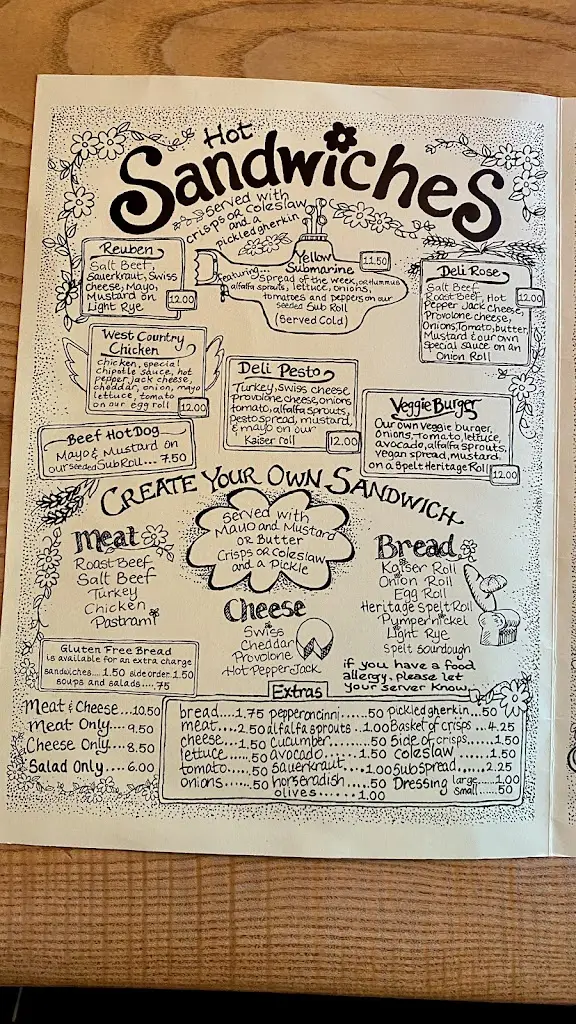 Hot
Sandwiches
Served with
crisps or coleslaw
and a
pickled gherkin
Reuben
Salt Beef,
Sauerkraut, Swiss
cheese, Mayo,
Mustard on
Light Rye
12.00
Yellow
Submarine
11.50
Featuring
Spread of the week, or Hummus
alfalfa sprouts, lettuce, onions,
tomatoes and peppers on our
seeded Sub Roll
(Served Cold)
Deli Rose
Salt Beef
Roast Beef, Hot
Pepper Jack cheese,
Provolone cheese,
Onions, Tomato, butter,
Mustard & our own
Special sauce on an
Onion Roll
12.00
West Country
Chicken
Chicken, special
chipotle sauce, hot
pepper jack cheese,
cheddar, onion, mayo
lettuce, tomato
on our egg roll
12.00
Deli Pesto
Turkey, swiss cheese
provolone, cheese, onions
tomato, alfalfa sprouts,
pesto spread, mustard,
& mayo on our
Kaiser roll
12.00
Veggie Burger
Our own veggie burger,
onions, tomato, lettuce,
avocado, alfalfa sprouts,
vegan spread, mustard,
on a Spelt Heritage Roll
12.00
Beef Hot Dog
Mayo & Mustard on
our seeded Sub Roll... 7.50
Create Your Own Sandwich
Served with
Mayo and Mustard
or Butter
Crisps or coleslaw
and a Pickle
Meat
Roast Beef
Salt Beef
Turkey
Chicken
Pastrami
Cheese
Swiss
Cheddar
Provolone
Hot Pepper Jack
Bread
Kaiser Roll
Onion Roll
Egg Roll
Heritage Spelt Roll
Pumpernickel
Light Rye
Spelt Sourdough
if you have a food
allergy, please let
your server know
Gluten Free Bread
is available for an extra charge
sandwiches... 1.50 side order. 1.50
soups and salads.....75
Meat & Cheese....10.50
Meat Only.... 9.50
Cheese Only... 8.50
Salad Only.... 6.00
Extras
bread....1.75 pepperoncini......50 pickled gherkin...50
meat...2.50 alfalfa sprouts..1.00 Basket of crisps..4.25
cheese...1.50 cucumber......50 Side of crisps.....1.50
lettuce.....50 avocado......1.50 coleslaw......1.50
tomato.....50 sauerkraut...1.00 Sub spread......2.25
onions.....50 horseradish.....50 Dressing large.....1.00
olives.......1.00 small......50